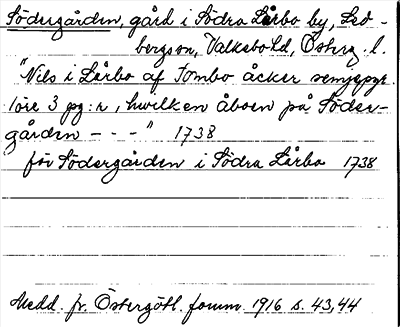 Södergården, gård i Södra Lårbo by, Led-
bergssn, Valkebold, Österg. l.
"Nils i Lårbo af Tombo åcker
löre 3 pg:r, hwilken åboen på Söder-
gården - - -" 1738
för Södergården i Södra Lårbo 1738
Medd. fr. Östergötl. fornm. 1916 s. 43,44